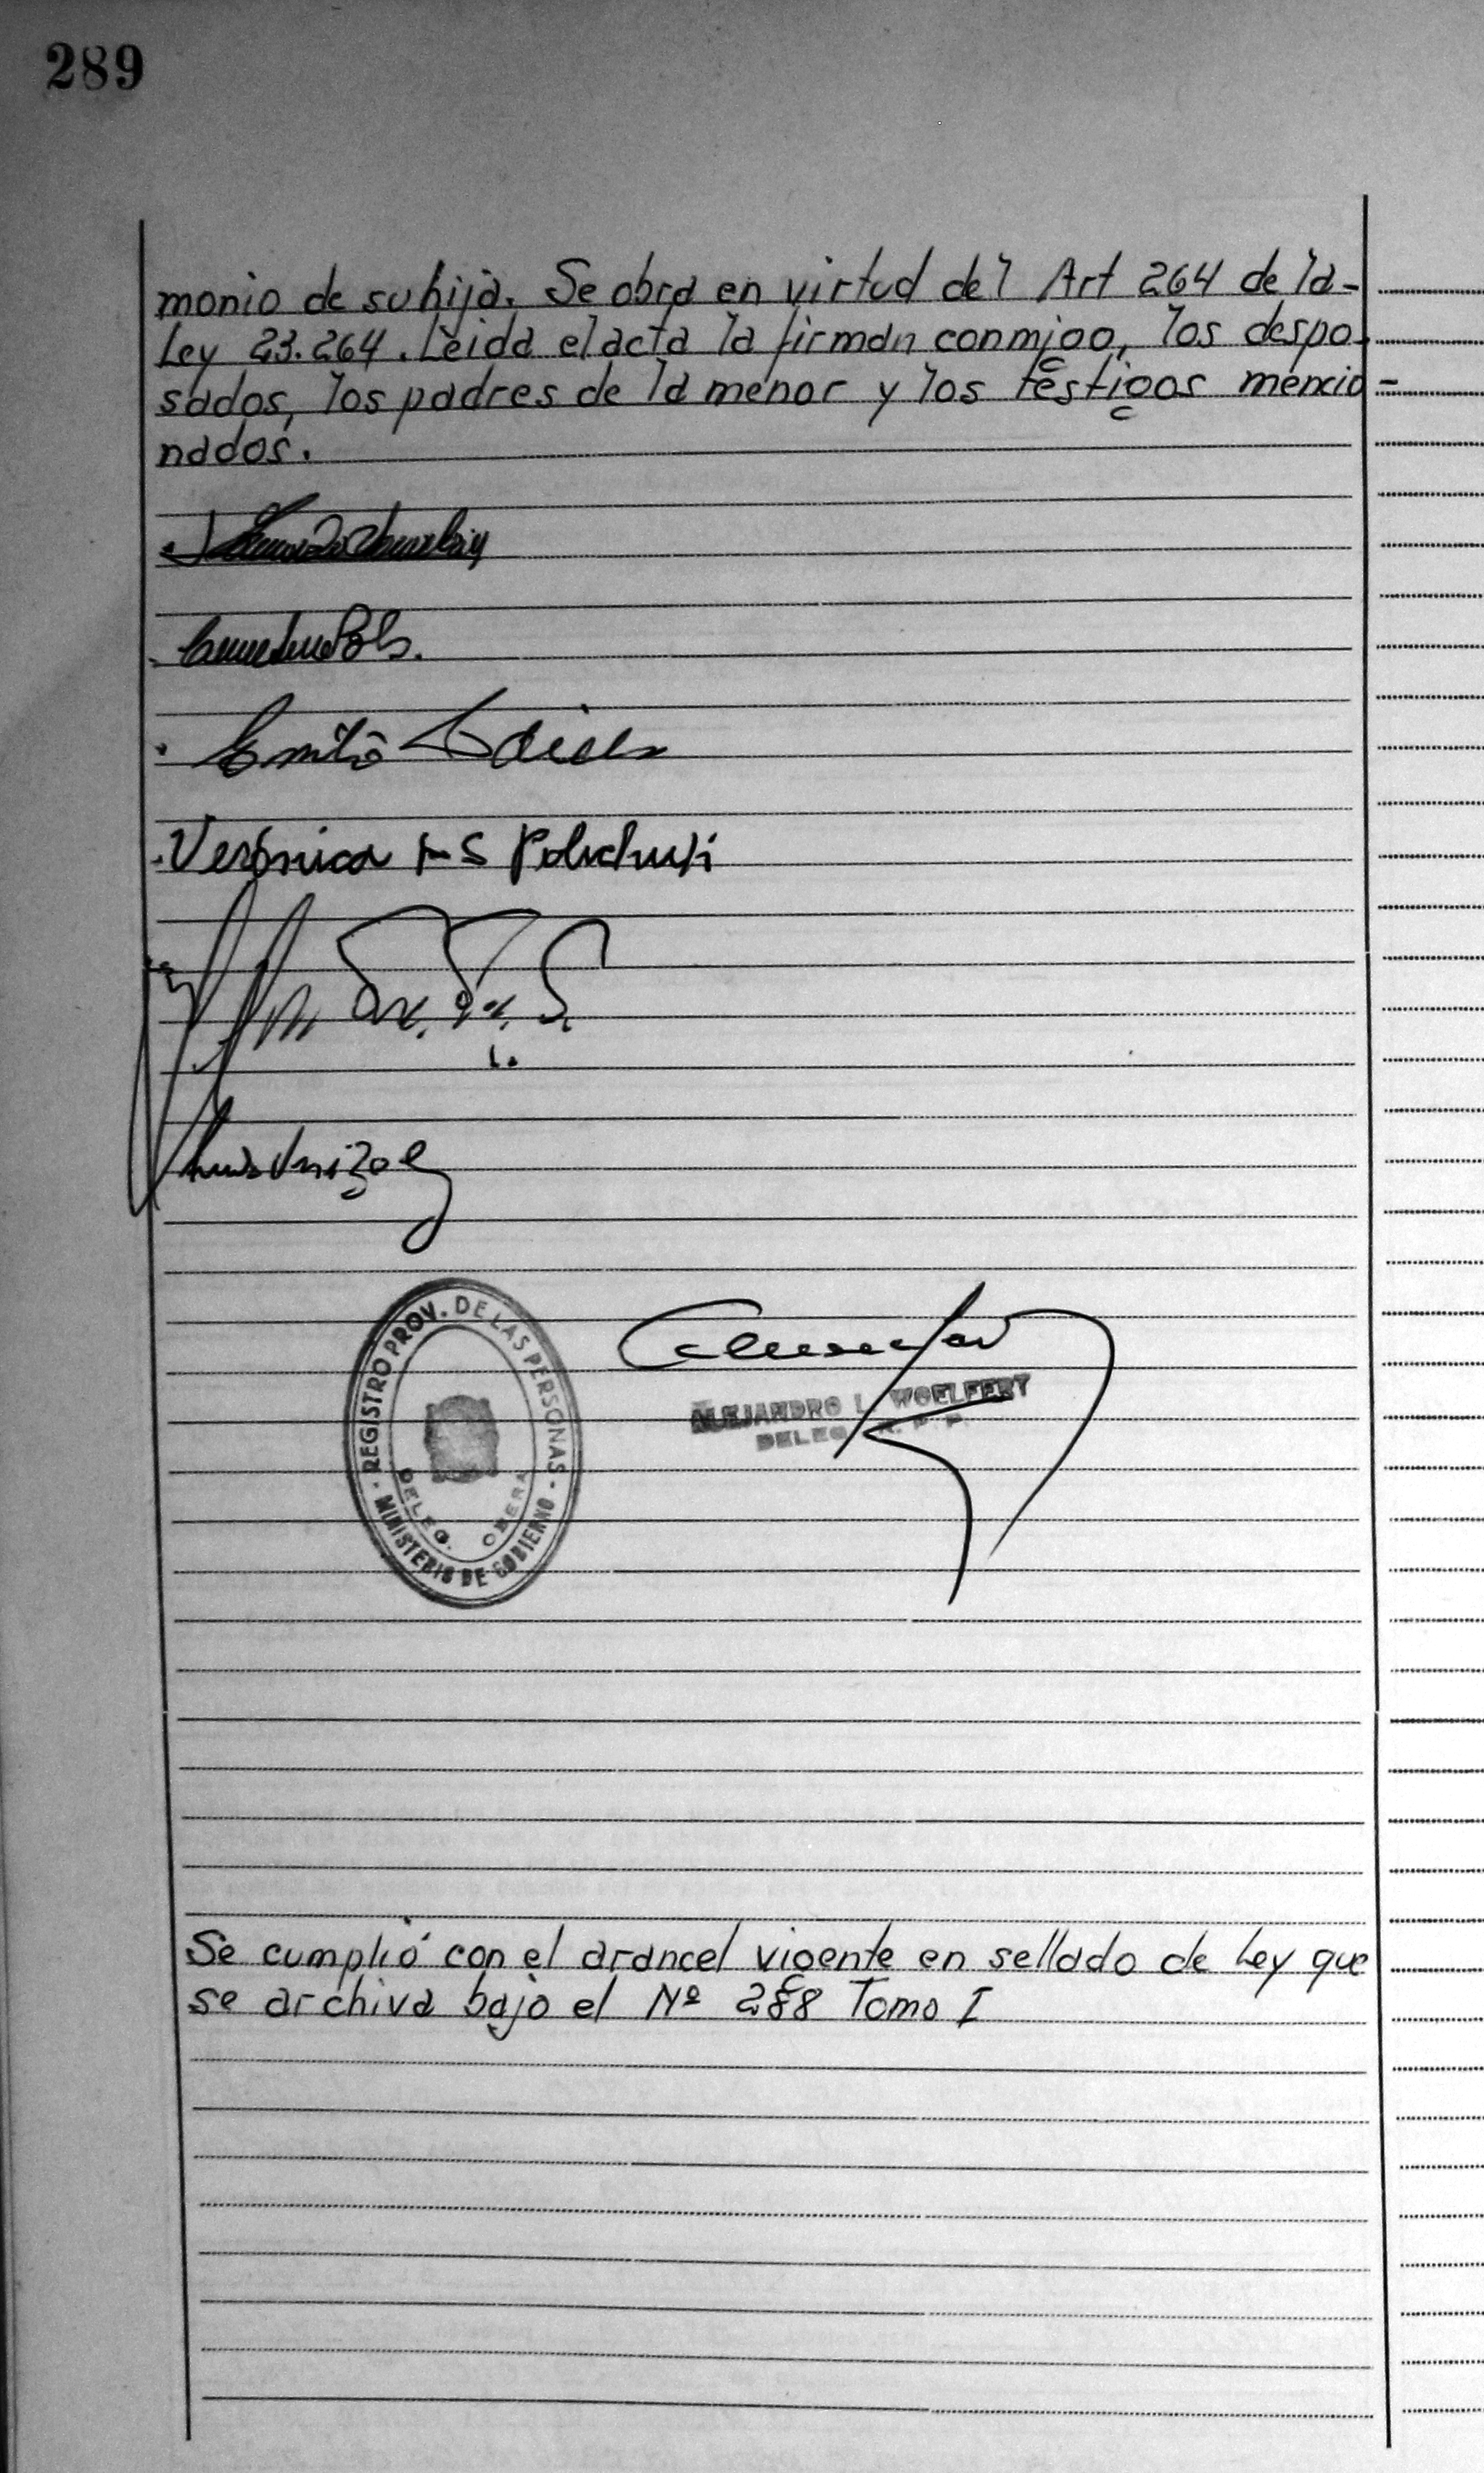 289
monio de su hija. Se obra en virtud del Art 264 de la-
Ley 23.264. Leida el acta la firman conmigo, los despo-
sados, los padres de la menor y los testigos mencio-
nados.
Emilio
Verónica
REGISTRO PROV. DE LAS PERSONAS - MINISTERIO DE GOBIERNO -
DELEG. OBERA
ALEJANDRO L. WOELFERT
DELEG. R. P. P.
Se cumplió con el arancel vigente en sellado de Ley que
se archiva bajo el Nº 288 Tomo I